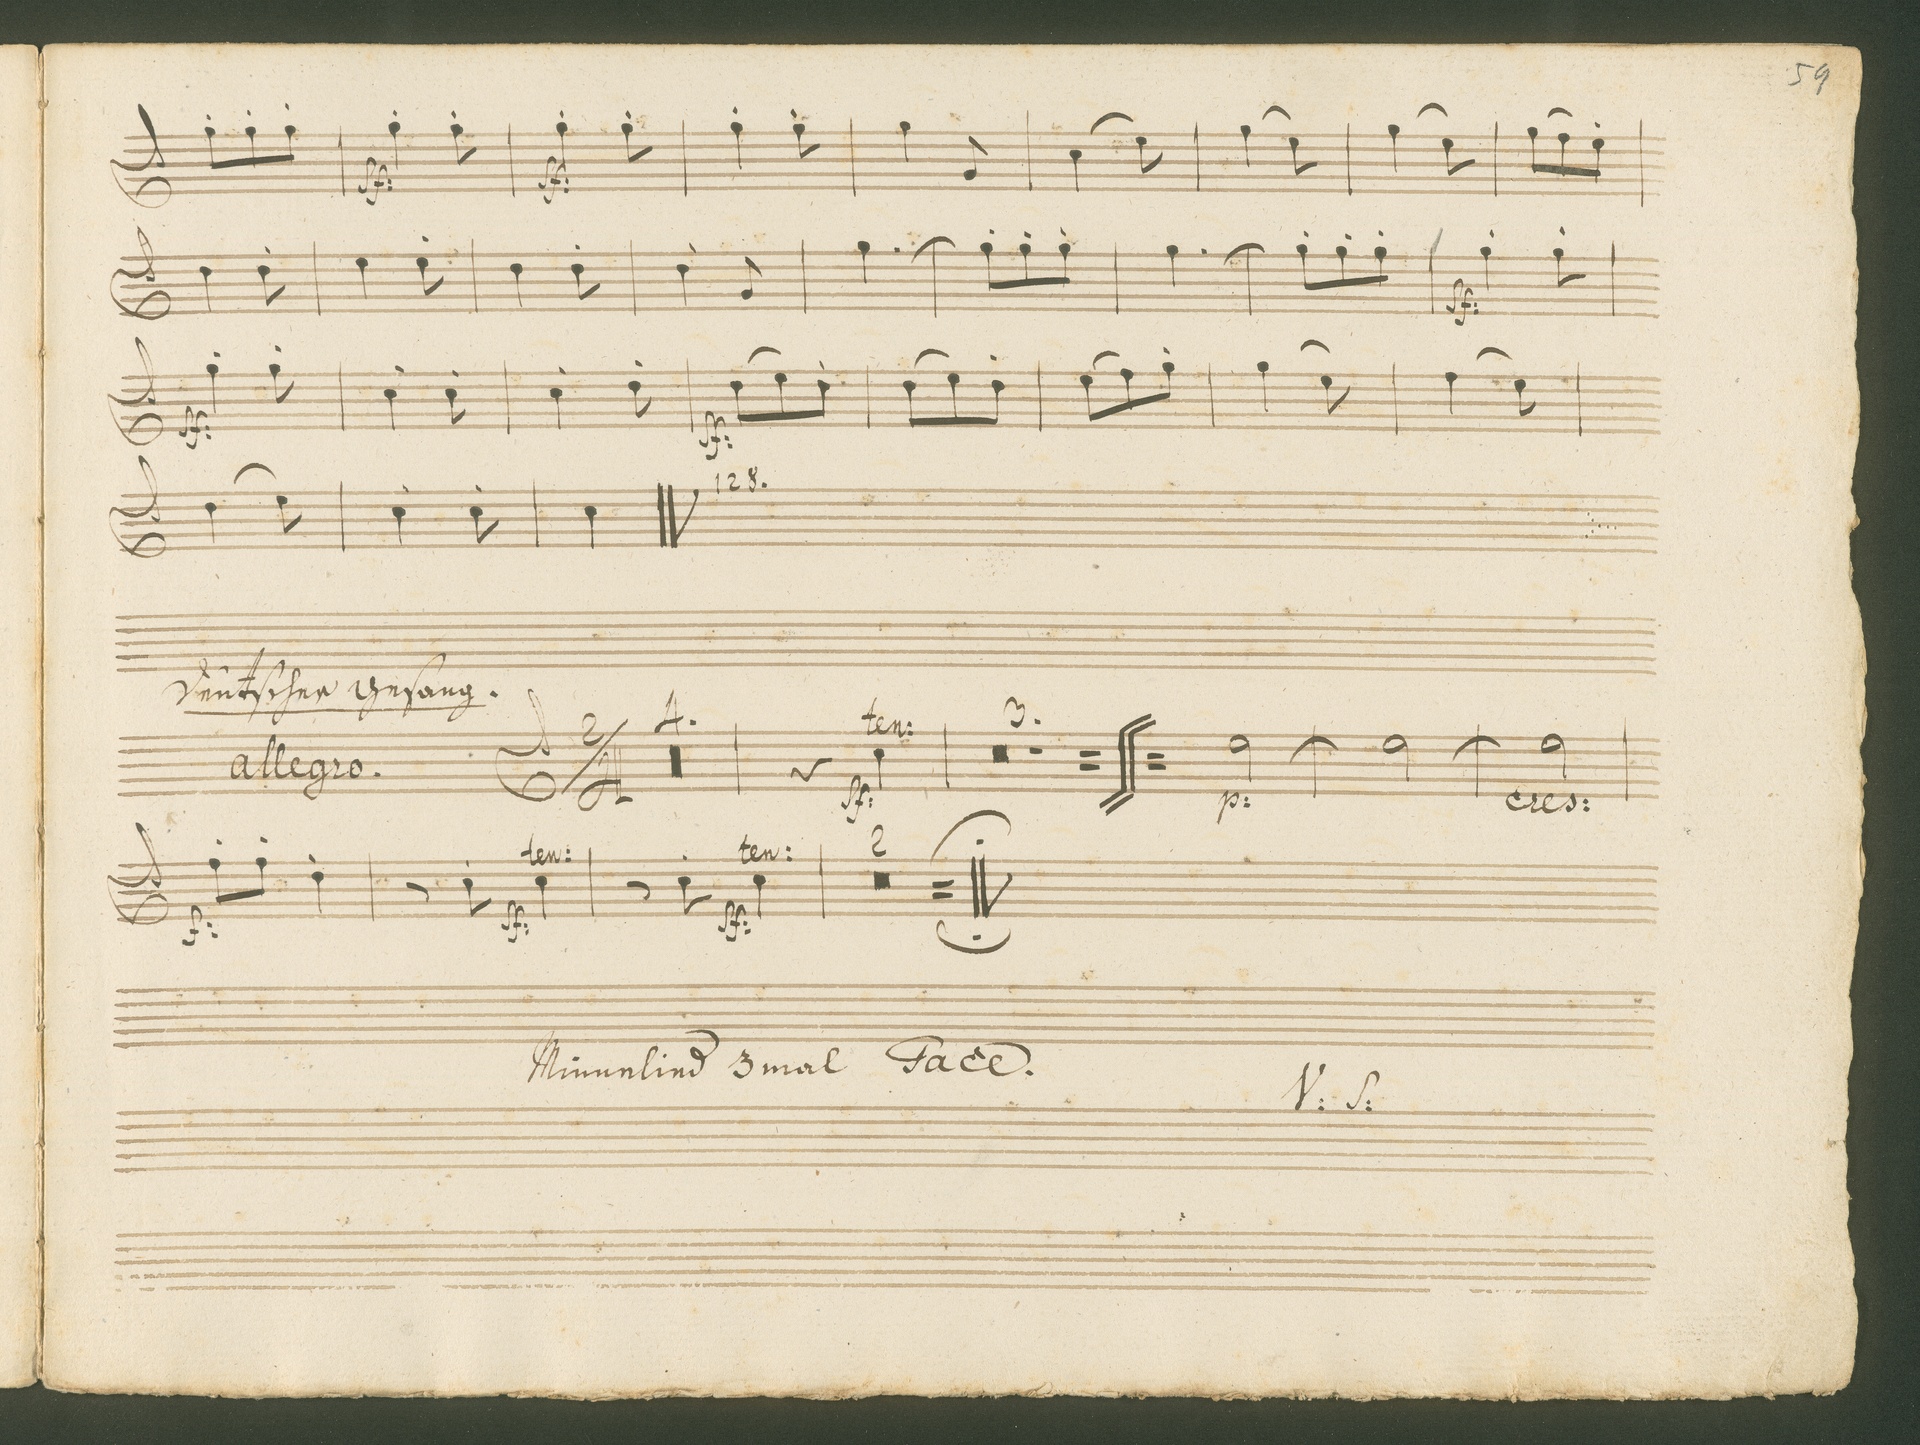 59
sf: sf:
sf:
sf: sf:
128.
Deutscher Gesang.
4. ten: 3.
allegro. 2/4
sf: p: cres:
ten: ten: 2
f: sf: sf:
Minnelied 3mal Tace.
V: S: